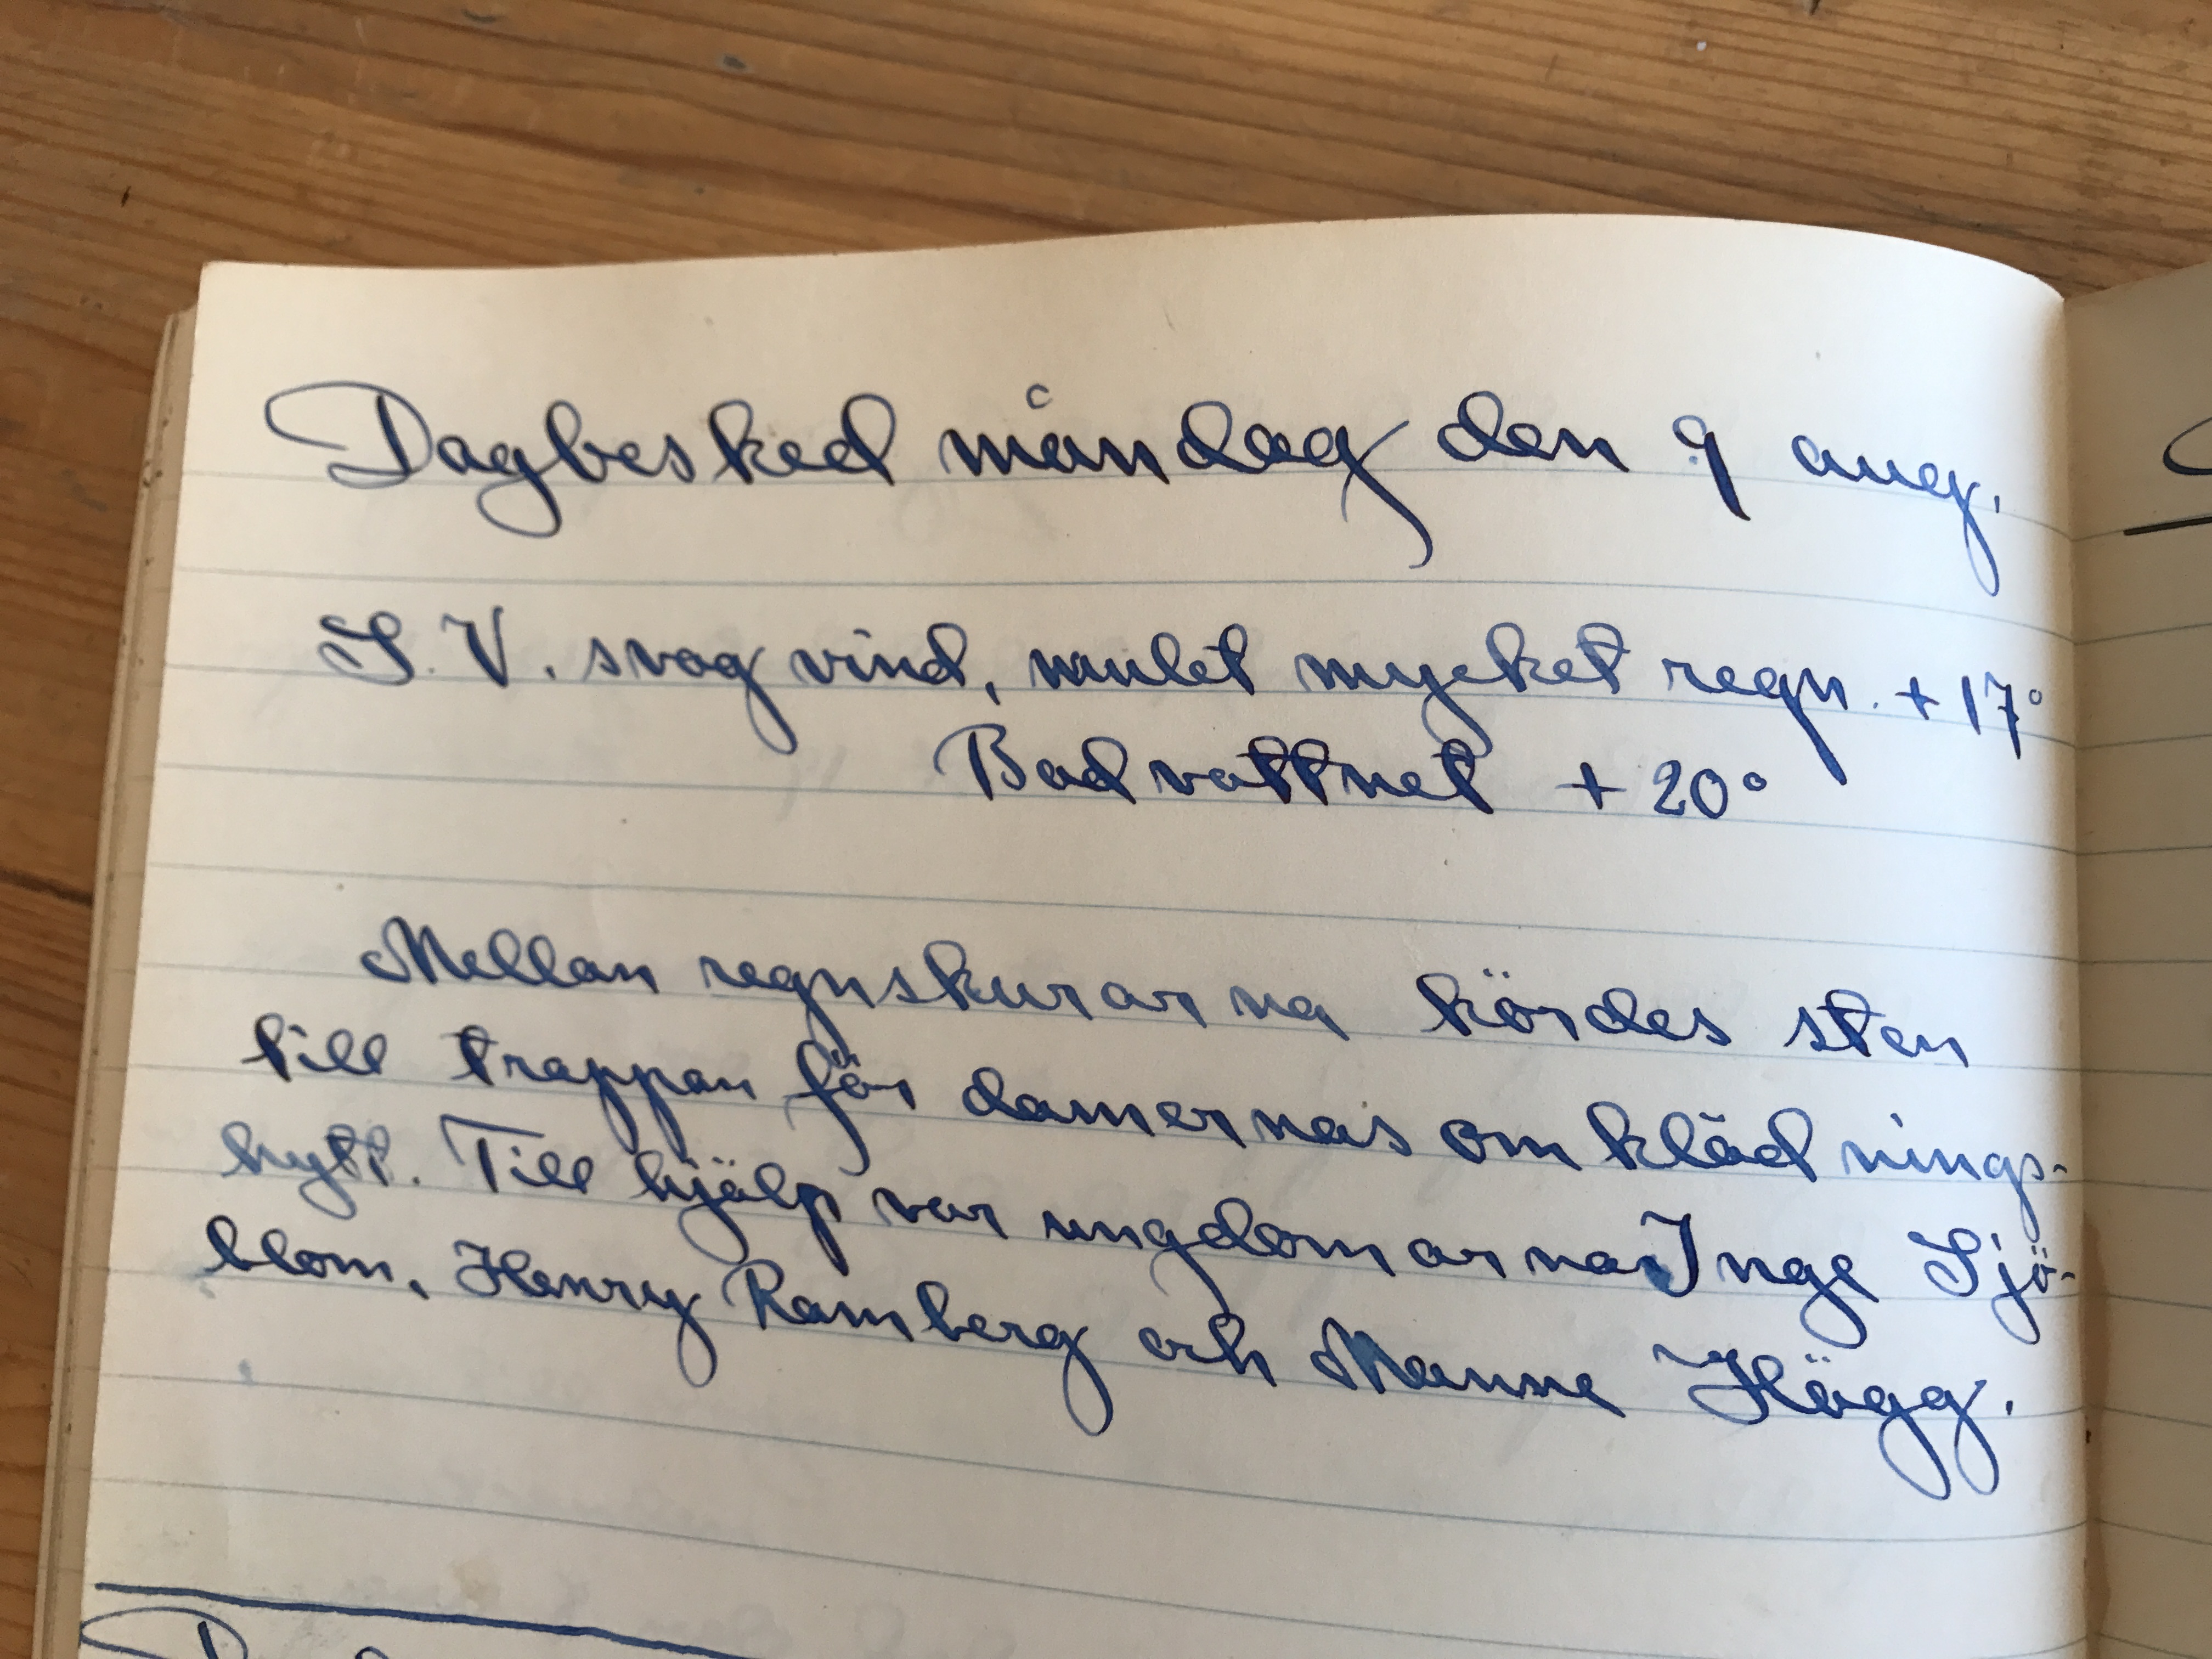 Dagbesked måndag den 9 aug.
S. V. svag vind, mulet mycket regn. +17°
Badvattnet +20°
Mellan regnskurarna kördes sten
till trappan för damernas omklädnings-
hytt. Till hjälp var ungdomarna Inge Sjö-
blom, Henry Ramberg och Manne Hägg.